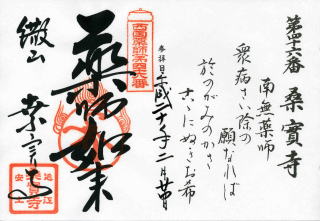 第四十六番 桑實寺
南無薬師
衆病さい除の
願なれば
於のがみのかさ
古ゝにぬきお希
参拝日 平成二十年二月廿四日
西国薬師第四十六番
薬師如来
繖山
桑實寺